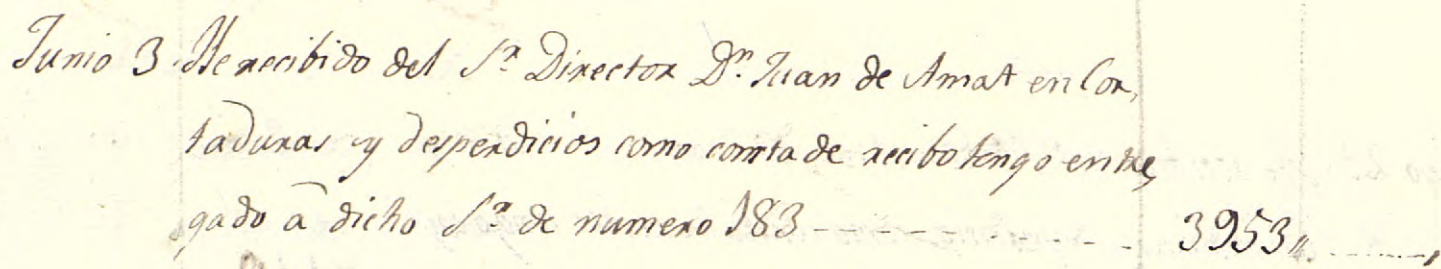 Junio 3 He recibido del S.r Director D.n Juan de Amat en Cor,
taduras y desperdicios como consta de recibo tengo entre,
gado â dicho S.r de numero 183 - - - - - - - - - - 3953 ,,. - - - - - ,